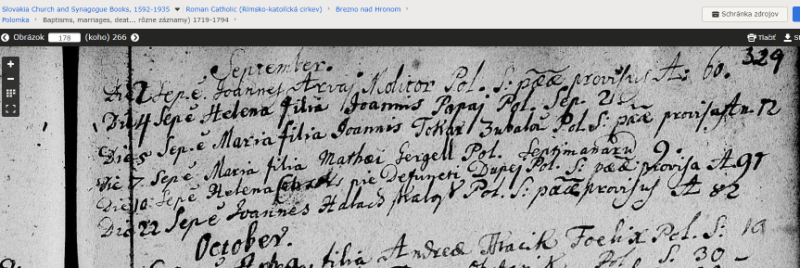 Slovakia Church and Synagogue Books, 1592-1935 Roman Catholic (Rímsko-katolická cirkev) Brezno nad Hronom
Polomka Baptisms, marriages, deat... rôzne záznamy) 1719-1794
Schránka zdrojov
Obrázok 178 (koho) 266
Tlačiť St
329
September.
Die 2 Sep.e Joannes Arvaj Molitor Pol. S: pææ provisus A: 60.
Die 4 Sepe Helena filia Joannis Papaj Pol. Sep. 2
Die 5 Sep.e Maria filia Joannis Tokar Zubala Pol. S: pææ provisa An. 12
Die 7 Sepe Maria filia Mathæi Gergell Pol. Septimanarū 9.
Die 10 Sepe Helena pie Defuncti Pol. S: pææ provisa A 91
Die 22 Sep e Joannes Halach Pol. S: pææ provisus A 82
October.
filia Andreæ Foelix Pol. S: 19
Pol. S. 30